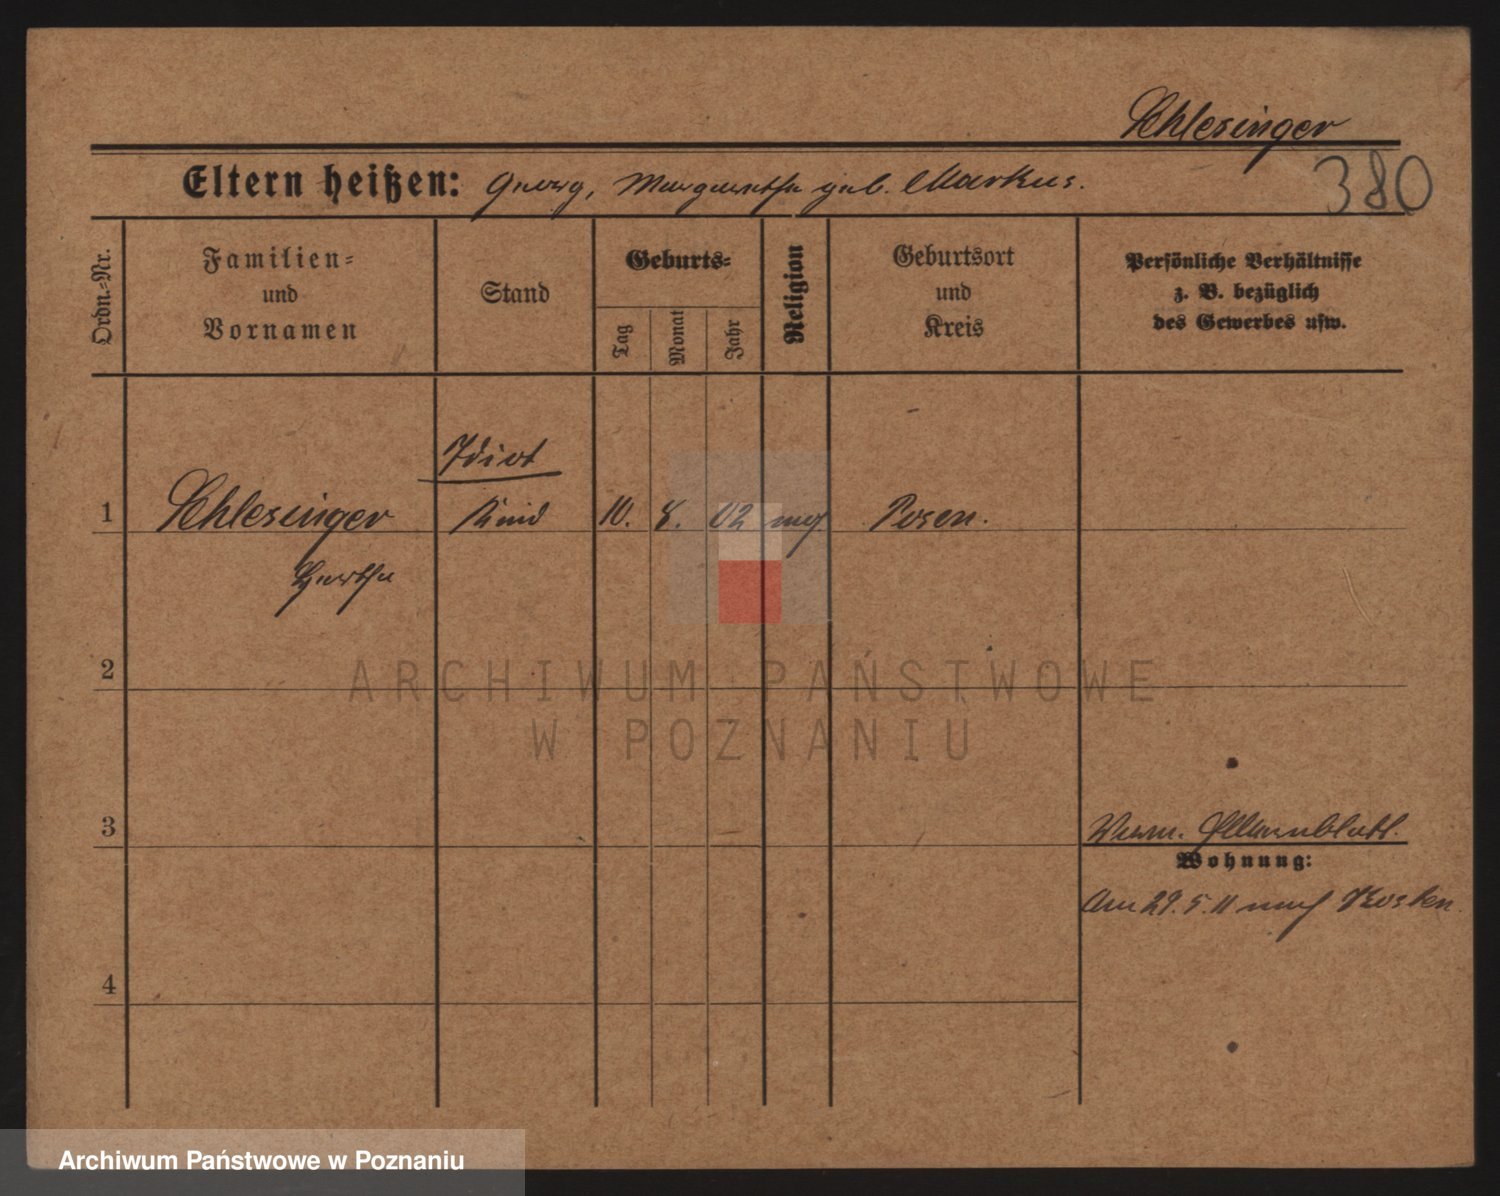 Schlesinger
380
Eltern heißen: Georg, Margarethe geb. Markus.
Ordn.-Nr.
Familien- und Vornamen
Stand
Geburts-
Tag
Monat
Jahr
Religion
Geburtsort und Kreis
Persönliche Verhältnisse
z. B. bezüglich
des Gewerbes usw.
Idiot
1 Schlesinger Kind 10. 8. 02 Posen.
Hertha
2
3
Wohnung:
Am 29. 5. 11 nach Kosten.
4
ARCHIWUM PAŃSTWOWE
W POZNANIU
Archiwum Państwowe w Poznaniu